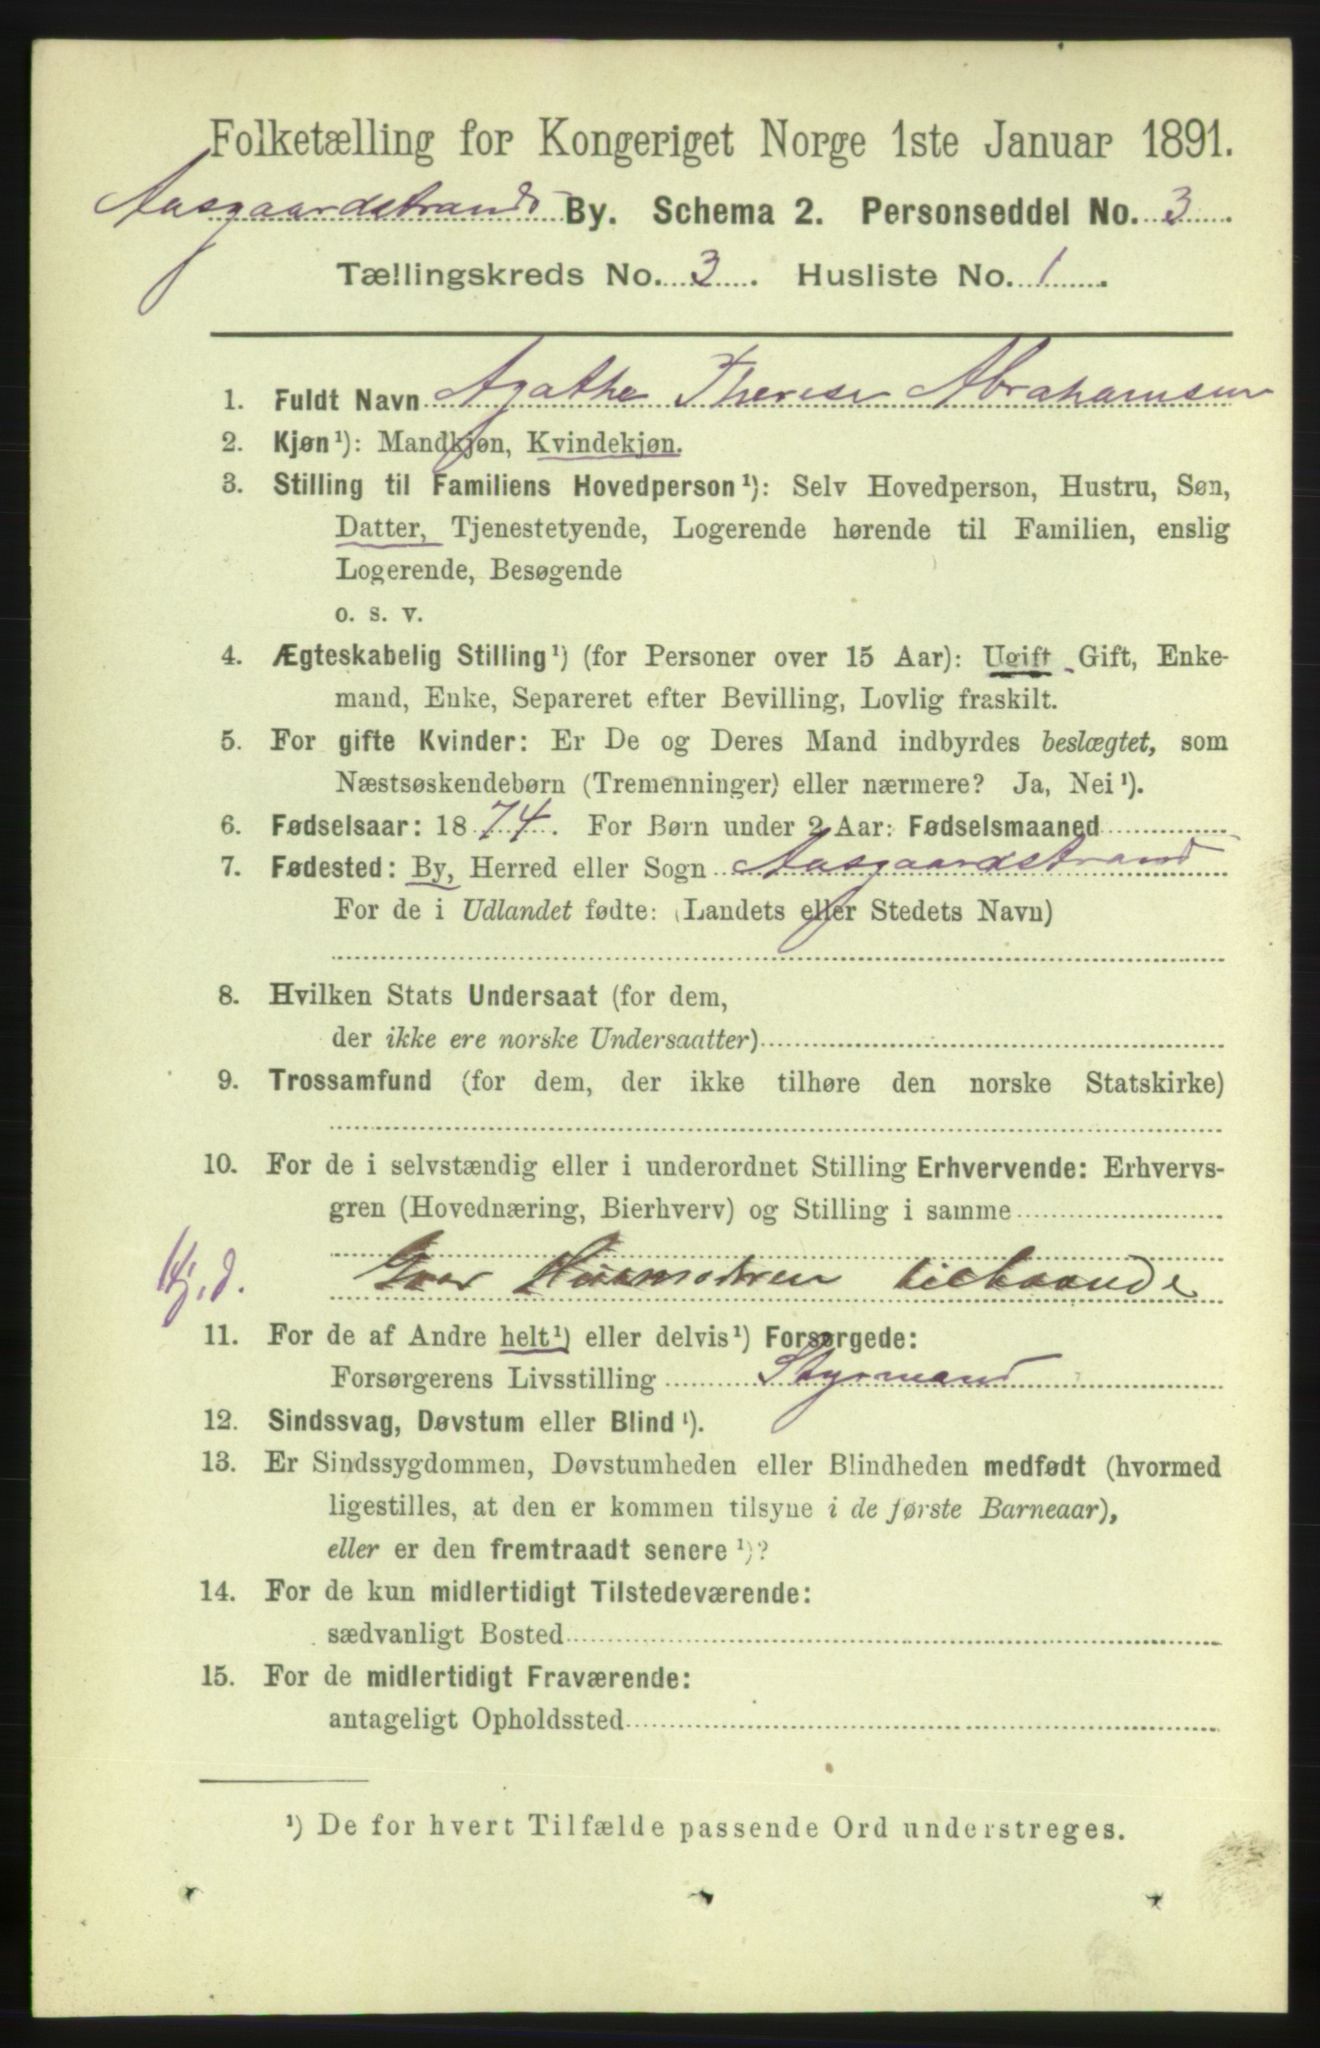 Folketælling for Kongeriget Norge 1ste Januar 1891.
Aasgaardstrands By. Schema 2. Personseddel No. 3.
Tællingskreds No. 3. Husliste No. 1.
1. Fuldt Navn Agathe Therese Abrahamsen
2. Kjøn¹): Mandkjøn, Kvindekjøn.
3. Stilling til Familiens Hovedperson¹): Selv Hovedperson, Hustru, Søn,
Datter, Tjenestetyende, Logerende hørende til Familien, enslig
Logerende, Besøgende
o. s. v.
4. Ægteskabelig Stilling¹) (for Personer over 15 Aar): Ugift, Gift, Enke-
mand, Enke, Separeret efter Bevilling, Lovlig fraskilt.
5. For gifte Kvinder: Er De og Deres Mand indbyrdes beslægtet, som
Næstsøskendebørn (Tremenninger) eller nærmere? Ja, Nei¹).
6. Fødselsaar: 1874. For Børn under 2 Aar: Fødselsmaaned
7. Fødested: By, Herred eller Sogn Aasgaardstrand
For de i Udlandet fødte: (Landets eller Stedets Navn)
8. Hvilken Stats Undersaat (for dem,
der ikke ere norske Undersaatter)
9. Trossamfund (for dem, der ikke tilhøre den norske Statskirke)
10. For de i selvstændig eller i underordnet Stilling Erhvervende: Erhvervs-
gren (Hovednæring, Bierhverv) og Stilling i samme
Hj.d. Gaar Husmoderen tilhaande
11. For de af Andre helt¹) eller delvis¹) Forsørgede:
Forsørgerens Livsstilling Styrmand
12. Sindssvag, Døvstum eller Blind¹).
13. Er Sindssygdommen, Døvstumheden eller Blindheden medfødt (hvormed
ligestilles, at den er kommen tilsyne i de første Barneaar),
eller er den fremtraadt senere¹)?
14. For de kun midlertidigt Tilstedeværende:
sædvanligt Bosted
15. For de midlertidigt Fraværende:
antageligt Opholdssted
¹) De for hvert Tilfælde passende Ord understreges.